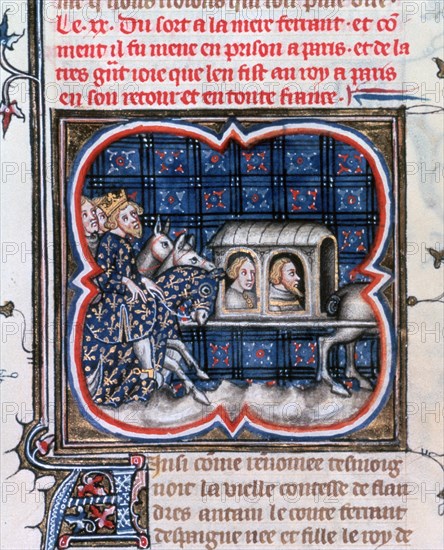 Le .xx. Du sort a la mere ferrant · et cō
ment il fu mene en prison a paris · et de la
tres grāt ioie que len fist au roy a paris
en son retour · et en toute france ·
Ainsi cōme renomee tesmoig
noit la vielle contesse de flan
dres antain le conte ferrant
despaigne nee et fille le roy de